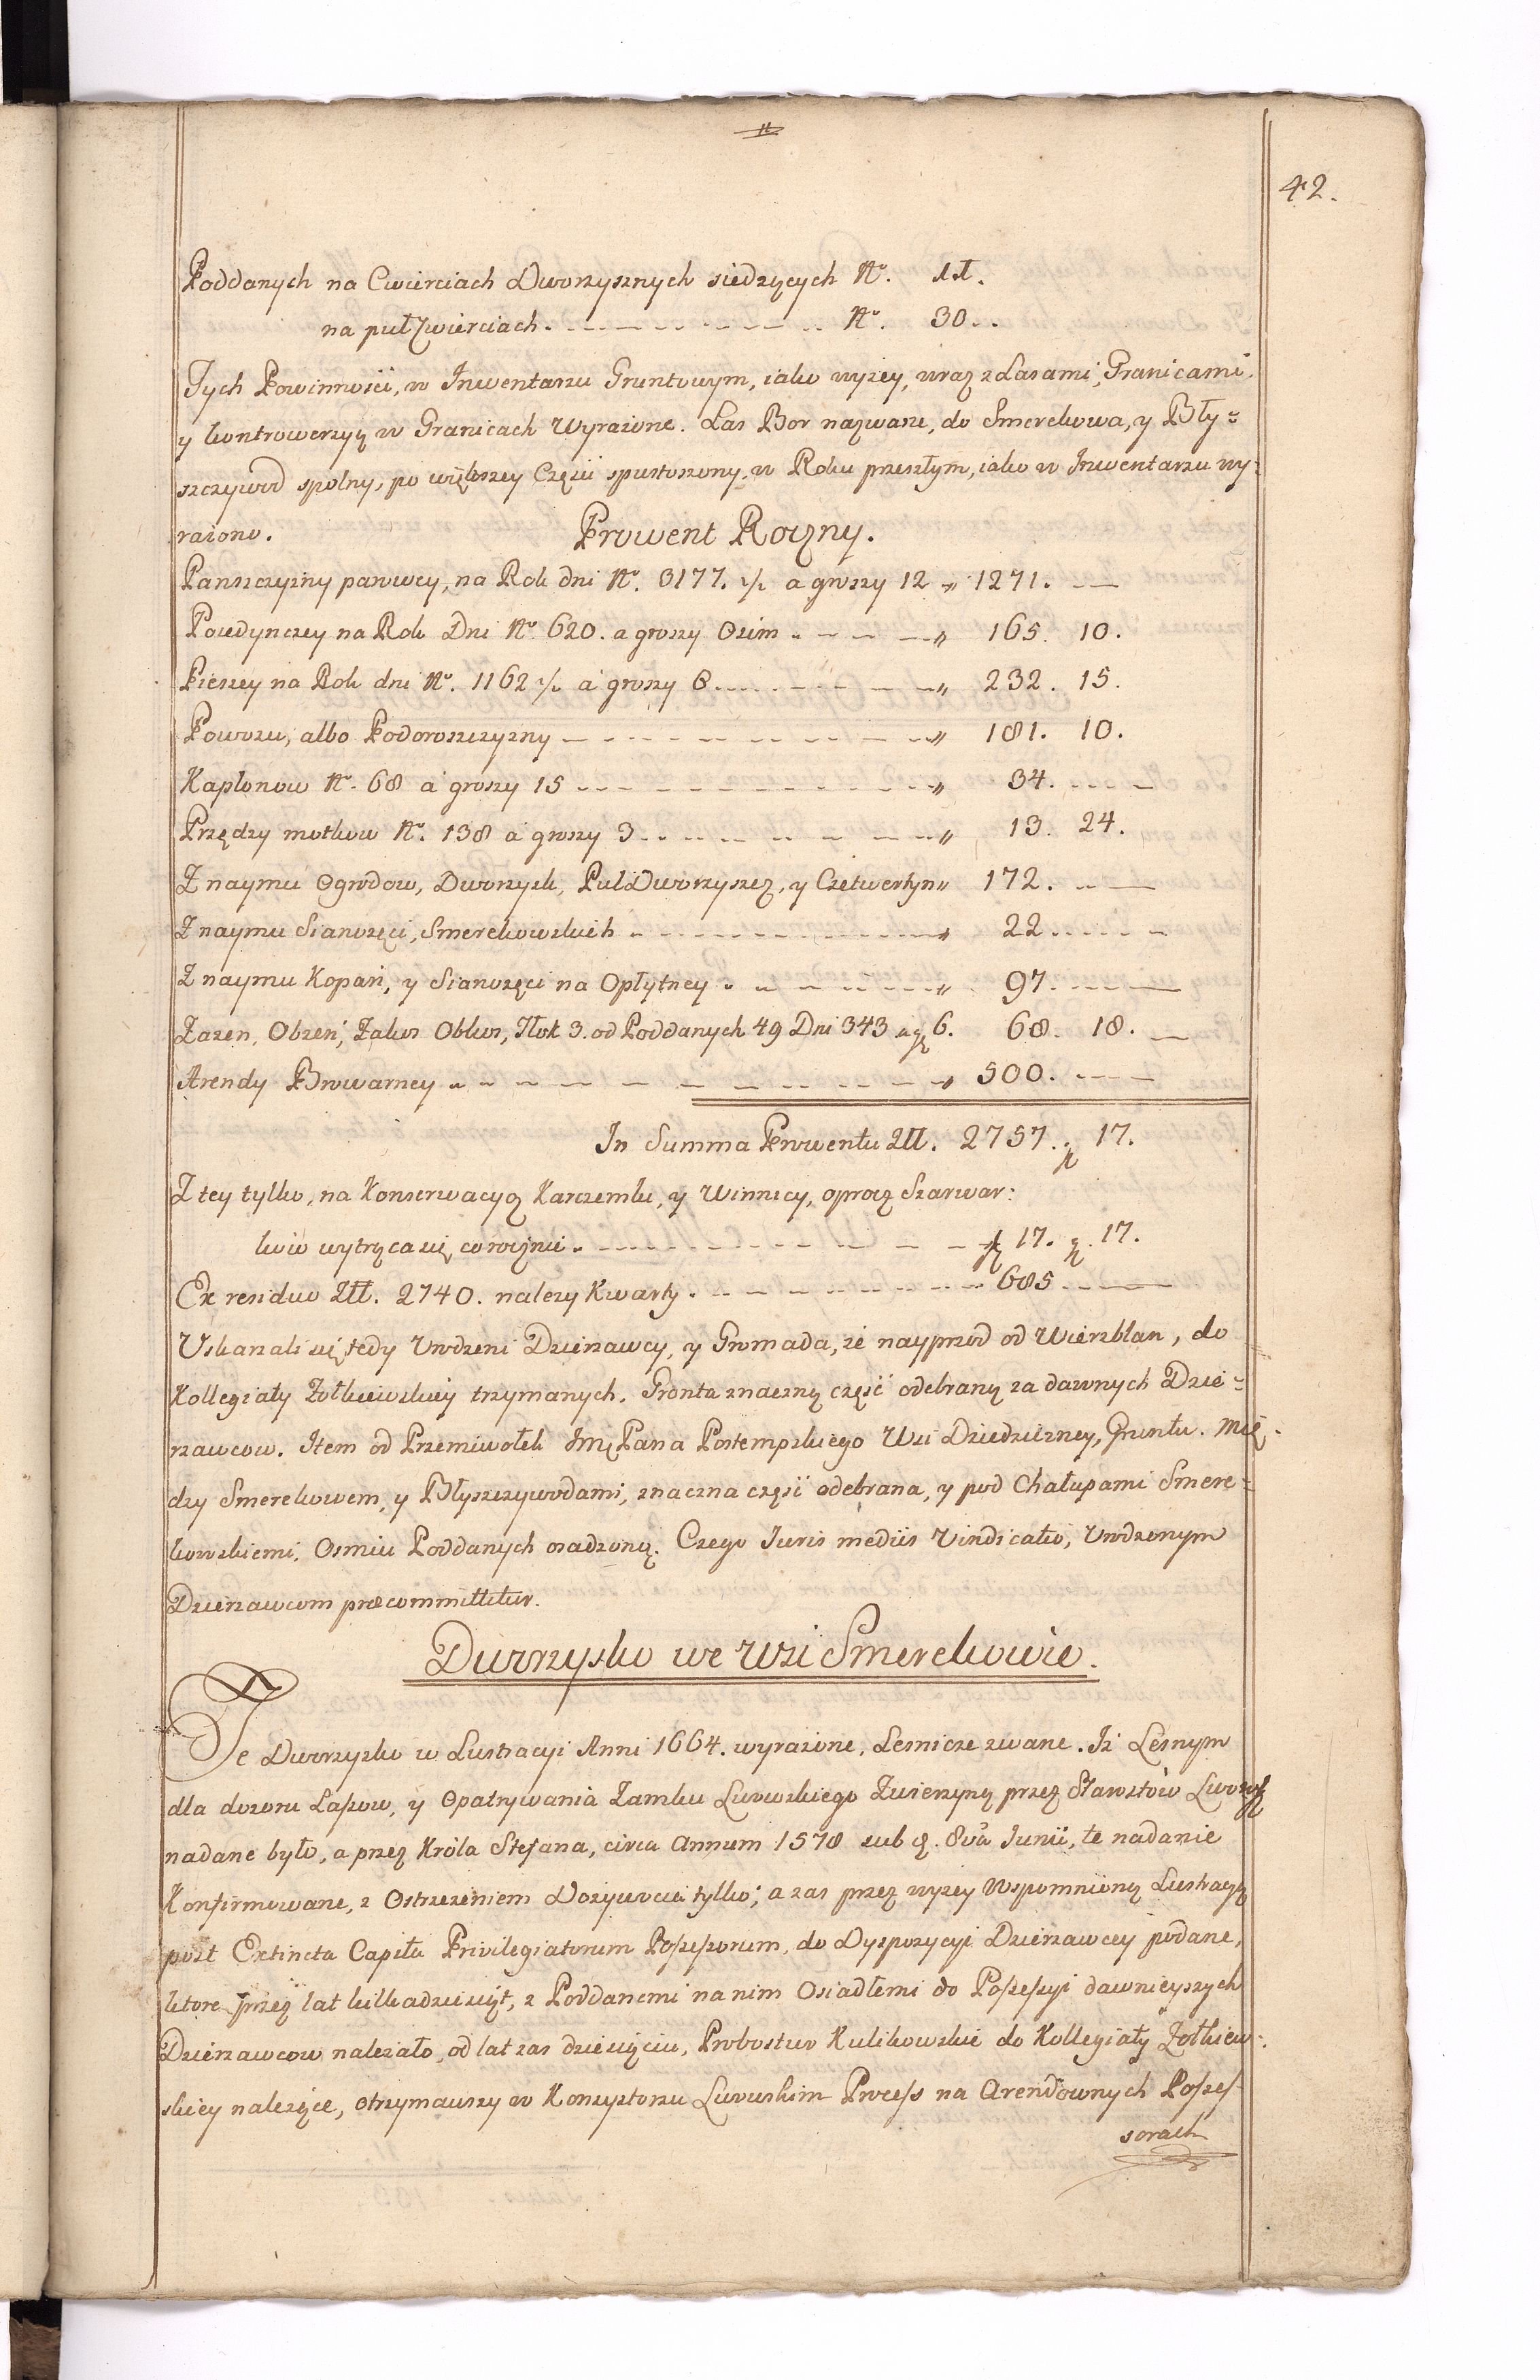 42.
Poddanych na Cwierciach Dworzysznych siedzących No. 11.
na puł Zwierciach No. 30.
Tych Powinności, w Inwentarzu Gruntowym, iako wyzey, wraz z Lasami, Granicami,
y kontrowerzyą w Granicach Wyrazone. Las Bor nazwany, do Smerekowa, y Bły=
szczywod spolny, po większey Części spustoszony, w Roku przeszłym, iako w Inwentarzu wy=
razono. Prowent Roczny.
Panszczyzny parowey, na Rok dni No. 3177. ½ a groszy 12 „ 1271. —
Poiedynczey na Rok Dni No. 620. a groszy Osim „ 165. 10.
Pieszey na Rok dni No. 1162 ½ a groszy 6 „ 232. 15.
Powozu, albo Podoroszczyzny „ 181. 10.
Kapłonow No. 68 a groszy 15 „ 34. —
Przędzy motkow No. 138 a groszy 3 „ 13. 24.
Z naymu Ogrodow, Dworzysk, Puł Dworzyszcz, y Czetwertyn „ 172. —
Z naymu Sianozęci, Smerekowskich „ 22 —
Z naymu Kopań, y Sianozęci na Opłytney „ 97. —
Zazen, Obzen, Zakos Obkos, Tłok 3. od Poddanych 49 Dni 343 a g 6. 68. 18. —
Arendy Browarney „ 500. —
In Summa Prowentu Złł. 2757. g 17.
Z tey tylko, na Konserwacyą Karczemki, y Winnicy, oprocz Szarwar:
kow wytrąca się corocznie fl 17. g. 17.
Ex residuo Złł. 2740. nalezy Kwarty 685. —
Uskarzali się tedy Urodzeni Dzierzawcy, y Gromada, ze nayprzod od Wierzblan, do
Kollegiaty Zołkiewskiey trzymanych. Grontu znaczną część odebraną za dawnych Dzie=
rzawcow. Item od Przemiwołek Jmć Pana Postempskiego Wsi Dziedziczney, Gruntu. Mię.
dzy Smerekowem, y Błyszczywodami, znaczna część odebrana, y pod Chałupami Smere=
kowskiemi, Osmiu Poddanych osadzoną. Czego Iuris mediis Vindicatio, Urodzonym
Dzierzawcom præcommittitur.
Dworzysko we Wsi Smerekowie.
Te Dworzysko w Lustracyi Anni 1664. wyrazone, Lesnicze zwane. Iz Lesnym
dla dozoru Lasow, y Opatrywania Zamku Lwowskiego Zwierzyną przez Starostów Lwowsk
nadane było, a przez Króla Stefana, circa Annum 1578 sub d. 8va Iunii, te nadanie
Konfirmowane, z Ostrzezeniem Dozywocia tylko; a zas przez wyzey Wspomnioną Lustracyą
post Extincta Capita Privilegiatorum Possessorum, do Dyspozycyi Dzierzawcey podane,
ktore przez lat kilkadziesiąt, z Poddanemi na nim Osiadłemi do Possessyi dawnieyszych
Dzierzawcow nalezało, od lat zas dziesięciu, Probostwo Kulikowskie do Kollegiaty Zołkiew=
skiey nalezące, otrzymawszy w Konsystorzu Lwowskim Process na Arendownych Posses=
sorach